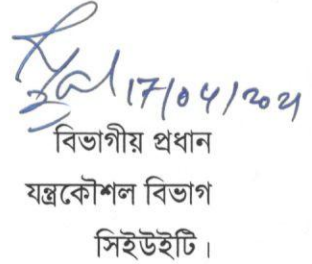 17/04/2021
বিভাগীয় প্রধান
যন্ত্রকৌশল বিভাগ
সিইউইটি।